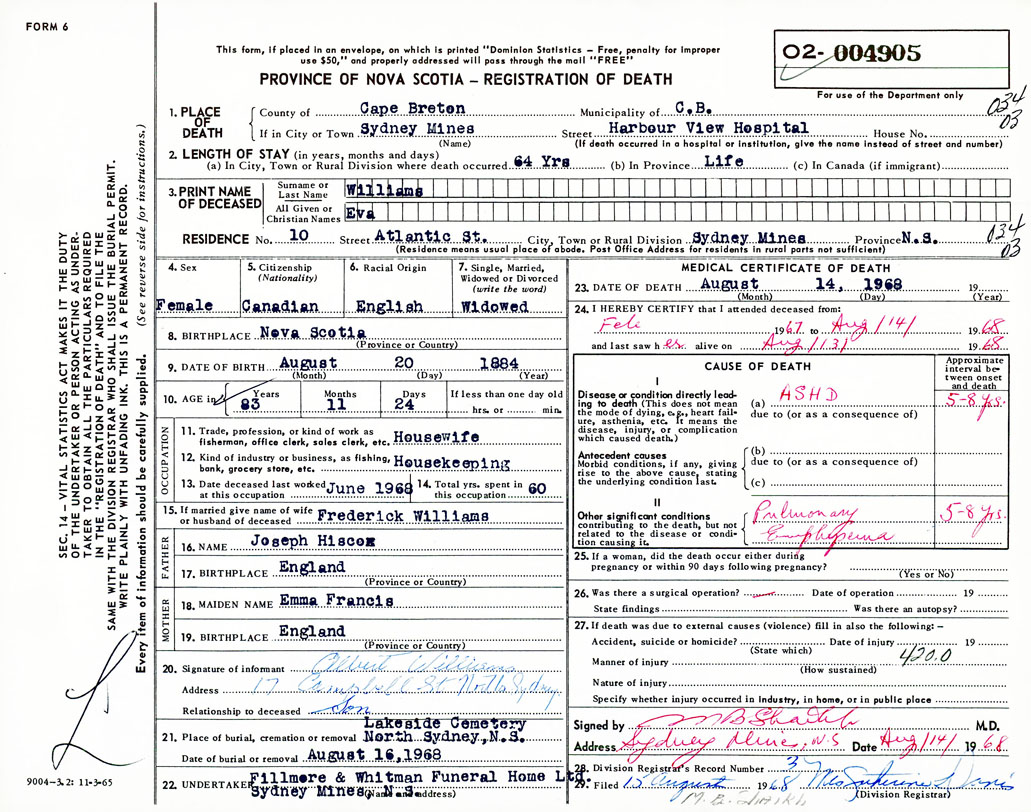 FORM 6
This form, if placed in an envelope, on which is printed "Dominion Statistics – Free, penalty for improper
use $50," and properly addressed will pass through the mail "FREE"
PROVINCE OF NOVA SCOTIA – REGISTRATION OF DEATH
02- 004905
For use of the Department only
034
03
1. PLACE OF DEATH
County of Cape Breton Municipality of C.B.
If in City or Town Sydney Mines Street Harbour View Hospital House No.
(Name) (If death occurred in a hospital or institution, give the name instead of street and number)
2. LENGTH OF STAY (in years, months and days)
(a) In City, Town or Rural Division where death occurred 64 Yrs (b) In Province Life (c) In Canada (if immigrant)
3. PRINT NAME OF DECEASED
Surname or Last Name Williams
All Given or Christian Names Eva
RESIDENCE No. 10 Street Atlantic St. City, Town or Rural Division Sydney Mines Province N.S.
034
03
(Residence means usual place of abode. Post Office Address for residents in rural parts not sufficient)
4. Sex
Female
5. Citizenship
(Nationality)
Canadian
6. Racial Origin
English
7. Single, Married,
Widowed or Divorced
(write the word)
Widowed
8. BIRTHPLACE Nova Scotia
(Province or Country)
9. DATE OF BIRTH August 20 1884
(Month) (Day) (Year)
10. AGE in Years Months Days If less than one day old
83 11 24 hrs. or min.
OCCUPATION
11. Trade, profession, or kind of work as
fisherman, office clerk, sales clerk, etc. Housewife
12. Kind of industry or business, as fishing,
bank, grocery store, etc. Housekeeping
13. Date deceased last worked
at this occupation June 1968
14. Total yrs. spent in
this occupation 60
15. If married give name of wife
or husband of deceased Frederick Williams
FATHER
16. NAME Joseph Hiscox
17. BIRTHPLACE England
(Province or Country)
MOTHER
18. MAIDEN NAME Emma Francis
19. BIRTHPLACE England
(Province or Country)
20. Signature of informant Albert Williams
Address 17 Campbell St North Sydney
Relationship to deceased Son
21. Place of burial, cremation or removal Lakeside Cemetery
North Sydney, N.S.
Date of burial or removal August 16, 1968
22. UNDERTAKER Fillmore & Whitman Funeral Home Ltd.
Sydney Mines, N.S.
(Name and address)
MEDICAL CERTIFICATE OF DEATH
23. DATE OF DEATH August 14, 1968 19
(Month) (Day) (Year)
24. I HEREBY CERTIFY that I attended deceased from:
Feb 1967 to Aug/14/ 1968
and last saw her alive on Aug/13/ 1968
CAUSE OF DEATH
Approximate
interval be-
tween onset
and death
I
Disease or condition directly lead-
ing to death (This does not mean
the mode of dying, e.g., heart fail-
ure, asthenia, etc. It means the
disease, injury, or complication
which caused death.)
(a) ASHD 5-8 yrs.
due to (or as a consequence of)
Antecedent causes
Morbid conditions, if any, giving
rise to the above cause, stating
the underlying condition last.
(b)
due to (or as a consequence of)
(c)
II
Other significant conditions
contributing to the death, but not
related to the disease or condi-
tion causing it.
Pulmonary
Emphysema
5-8 yrs.
25. If a woman, did the death occur either during
pregnancy or within 90 days following pregnancy?
(Yes or No)
26. Was there a surgical operation? Date of operation 19
State findings Was there an autopsy?
27. If death was due to external causes (violence) fill in also the following: –
Accident, suicide or homicide? Date of injury 19
(State which) 420.0
Manner of injury
(How sustained)
Nature of injury
Specify whether injury occurred in industry, in home, or in public place
Signed by M B Shaikh M.D.
Address Sydney Mines, N.S Date Aug/14/ 1968
28. Division Registrar's Record Number 37
29. Filed 15 August 1968
(Division Registrar)
M. B. Shaikh
SEC. 14 – VITAL STATISTICS ACT MAKES IT THE DUTY
OF THE UNDERTAKER OR PERSON ACTING AS UNDER-
TAKER TO OBTAIN ALL THE PARTICULARS REQUIRED
IN THE "REGISTRATION OF DEATH" AND TO FILE THE
SAME WITH THE DIVISION REGISTRAR WHO SHALL ISSUE THE BURIAL PERMIT.
WRITE PLAINLY WITH UNFADING INK. THIS IS A PERMANENT RECORD.
Every item of information should be carefully supplied. (See reverse side for instructions.)
9004-3.2: 11-3-65